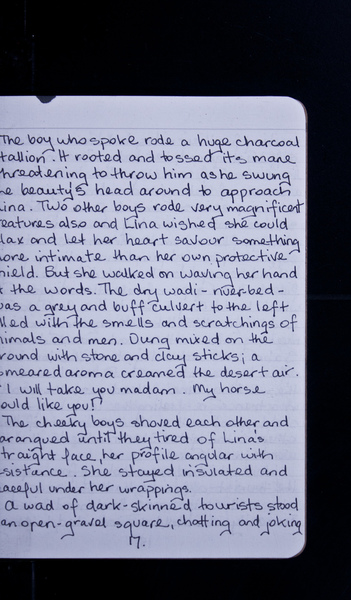 The boy who spoke rode a huge charcoal
tallion. It rooted and tossed its mane
hreatening to throw him as he swung
he beauty's head around to approach
ina. Two other boys rode very magnificent
eatures also and Lina wished she could
lax and let her heart savour something
ore intimate than her own protective
hield. But she walked on waving her hand
the words. The dry wadi - river-bed -
as a grey and buff culvert to the left
lled with the smells and scratchings of
imals and men. Dung mixed on the
round with stone and clay sticks; a
smeared aroma creamed the desert air.
'I will take you madam. My horse
ould like you!'
The cheeky boys shoved each other and
arangued until they tired of Lina's
traight face, her profile angular with
sistance. She stayed insulated and
aceful under her wrappings.
a wad of dark-skinned tourists stood
an open-gravel square, chatting and joking
7.